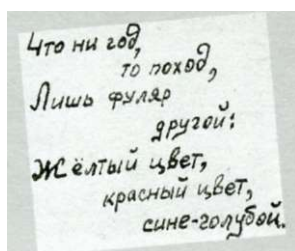 Что ни год,
то поход,
Лишь фуляр
другой:
Жёлтый цвет,
красный цвет,
сине-голубой.